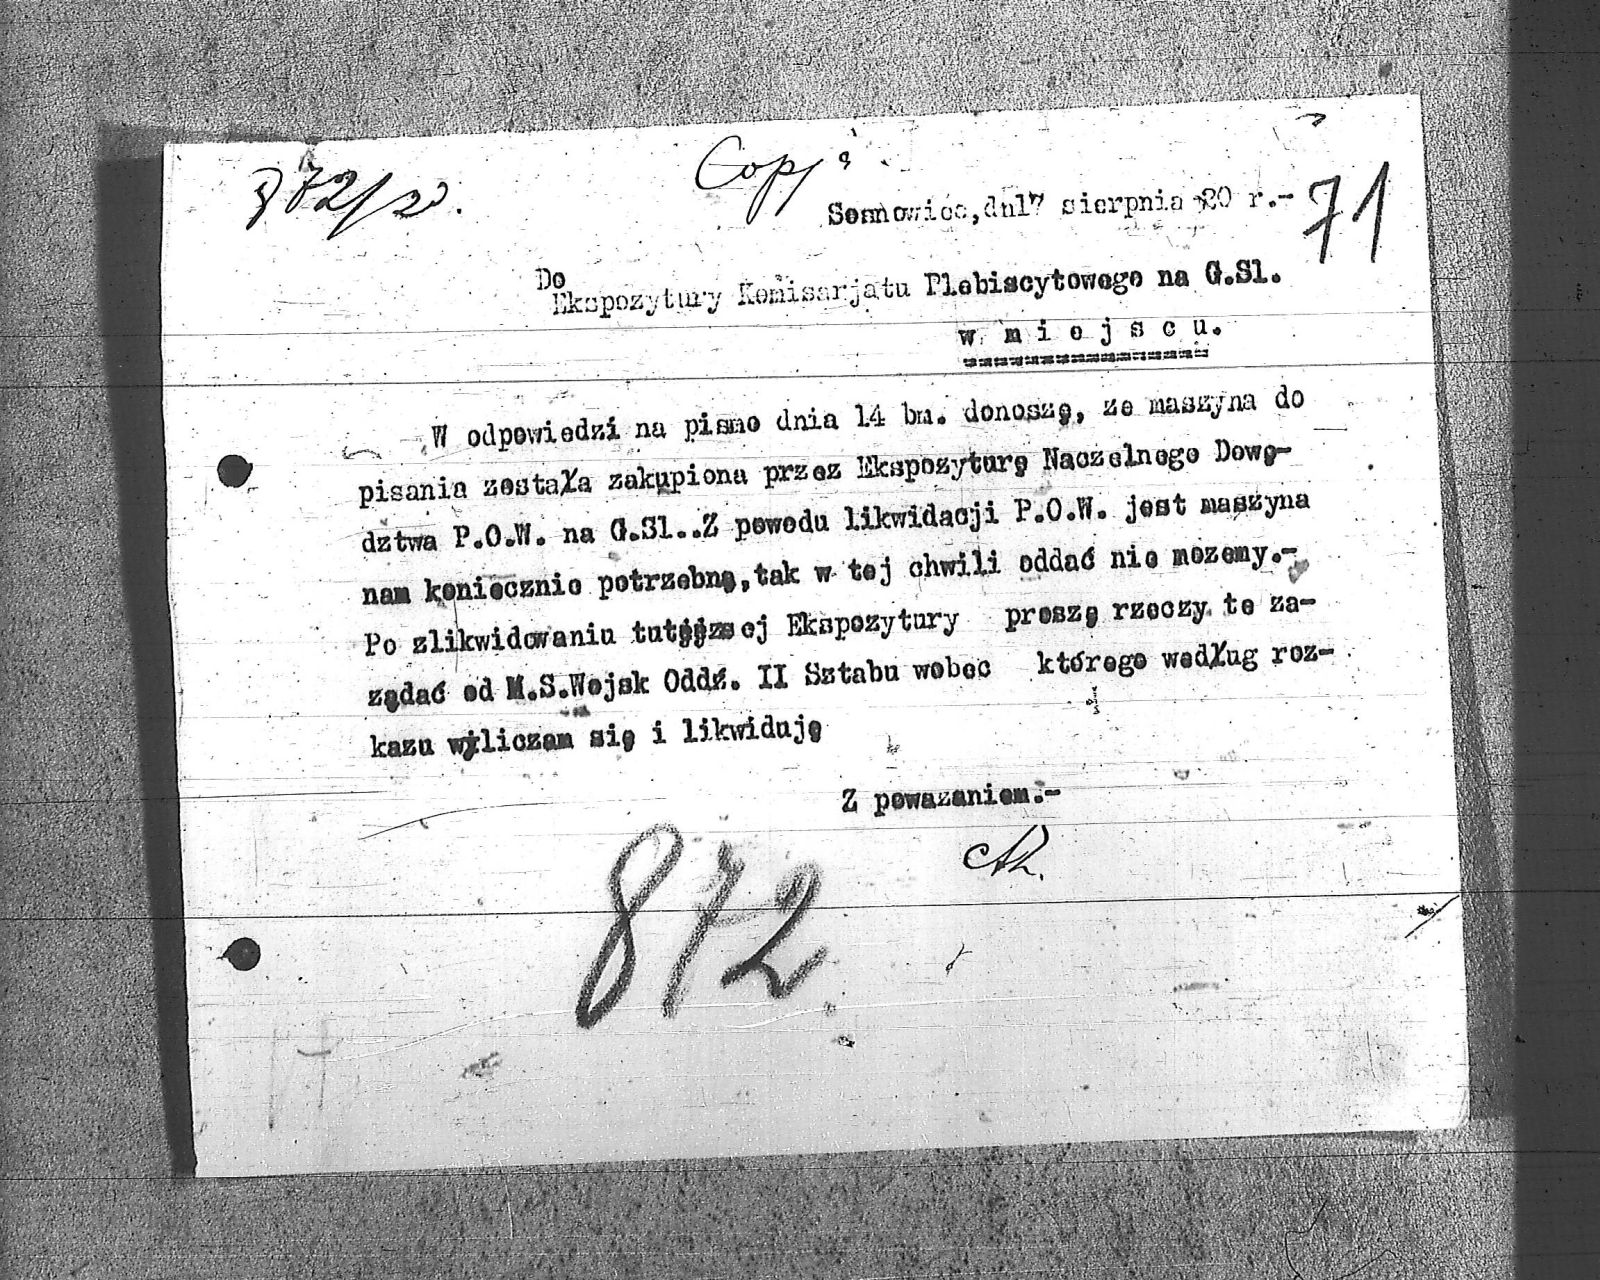 872/20.
Copja
71
Sosnowice,dn17 sierpnia 20 r.-
Do
Ekspozytury Komisarjatu Plebiscytowego na G.Sl.
w m i e j s c u.
W odpowiedzi na pismo dnia 14 bm. donoszę, ze maszyna do
pisania została zakupiona przez Ekspozyturę Naczelnego Dowę-
dztwa P.O.W. na G.Sl..Z powodu likwidacji P.O.W. jest maszyna
nam koniecznie potrzebną,tak w tej chwili oddać nie mozemy.-
Po zlikwidowaniu tutejszej Ekspozytury proszę rzeczy te za-
ządać od M.S.Wojsk Oddz. II Sztabu wobec którego według roz-
kazu wyliczam się i likwiduję
Z powazaniem.-
872